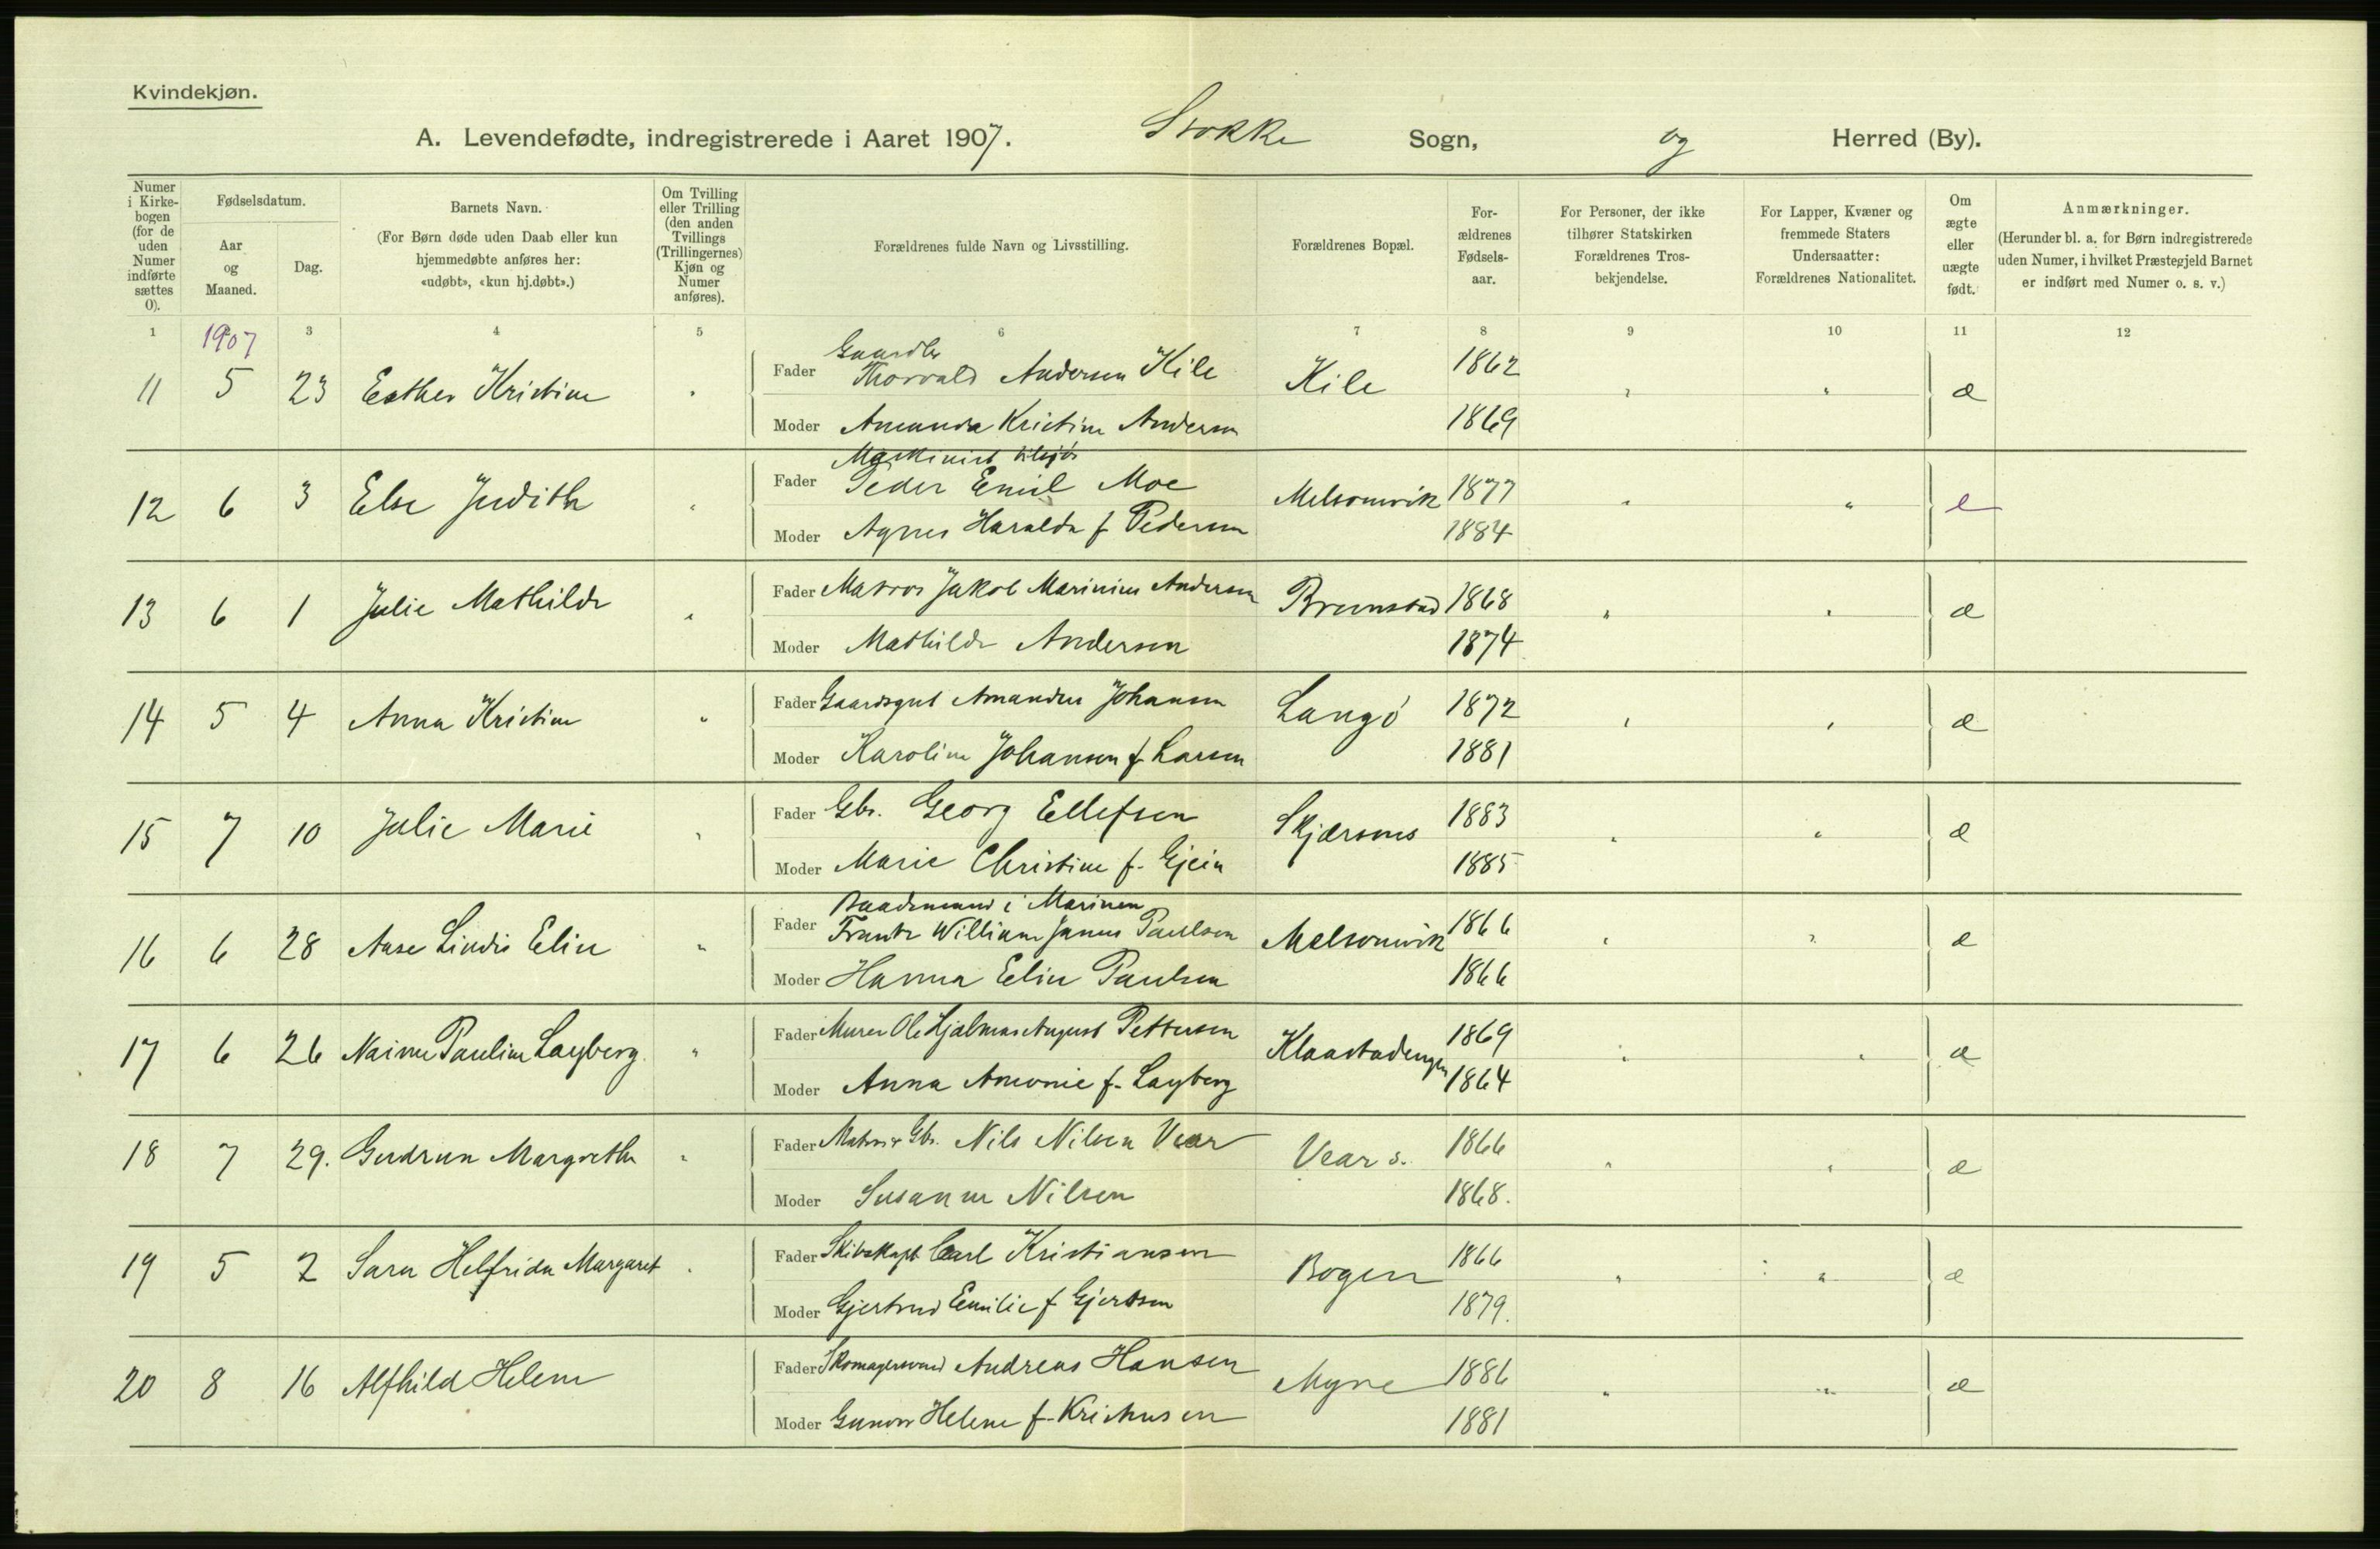 Kvindekjøn.
A. Levendefødte, indregistrerede i Aaret 1907. Stokke Sogn, og Herred (By).
Numer i Kirkebogen (for de uden Numer indførte sættes 0).
Fødselsdatum.
Aar og Maaned.
Dag.
Barnets Navn.
(For Børn døde uden Daab eller kun hjemmedøbte anføres her: «udøbt», «kun hj.døbt».)
Om Tvilling eller Trilling (den anden Tvillings (Trillingernes) Kjøn og Numer anføres).
Forældrenes fulde Navn og Livsstilling.
Forældrenes Bopæl.
Forældrenes Fødselsaar.
For Personer, der ikke tilhører Statskirken Forældrenes Trosbekjendelse.
For Lapper, Kvæner og fremmede Staters Undersaatter: Forældrenes Nationalitet.
Om ægte eller uægte født.
Anmærkninger.
(Herunder bl. a. for Børn indregistrerede uden Numer, i hvilket Præstegjeld Barnet er indført med Numer o. s. v.)
1 1907 3 4 5 6 7 8 9 10 11 12
11 5 23 Esther Kristine Fader Gaardbr Thorvald Andersen Kile Kile 1862 æ
Moder Amanda Kristine Andersen 1869
12 6 3 Else Judith Fader Maskinist tilsjøs Peder Emil Moe Melsomvik 1877 e
Moder Agnes Haralda f Pedersen 1884
13 6 1 Julie Mathilde Fader Matros Jakob Marinius Andersen Brunstad 1868 æ
Moder Mathilde Andersen 1874
14 5 4 Anna Kristine Fader Gaardsgut Amandus Johansen Langø 1872 æ
Moder Karoline Johansen f Larsen 1881
15 7 10 Julie Marie Fader Gbr. Georg Ellefsen Skjærsnes 1883 æ
Moder Marie Christine f. Gjein 1885
16 6 28 Aase Lindis Elin Fader Baadsmand i Marinen Frantz William Janus Paulsen Melsomvik 1866 æ
Moder Hanna Elin Paulsen 1866
17 6 26 Pauline Layberg Fader Murer Ole Hjalmar August Pettersen Klaastadengen 1869 æ
Moder Anna Antonie f. Layberg 1864
18 7 29. Gudrun Margrethe Fader Matros Gbr. Nils Nilsen Vear Vear s. 1866 æ
Moder Susanne Nilsen 1868.
19 5 2 Sara Helfrida Margaret Fader Skibskapt Carl Kristiansen Bogen 1866 æ
Moder Gjertrud Emilie f Gjertsen 1879.
20 8 16 Alfhild Helene Fader Skomagersvend Andreas Hansen Myre 1886 æ
Moder Gunvor Helene f. 1881